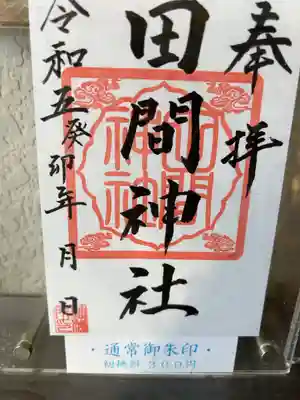 奉拝
田間神社
令和五癸卯年 月 日
・通常御朱印・
初穂料 300円